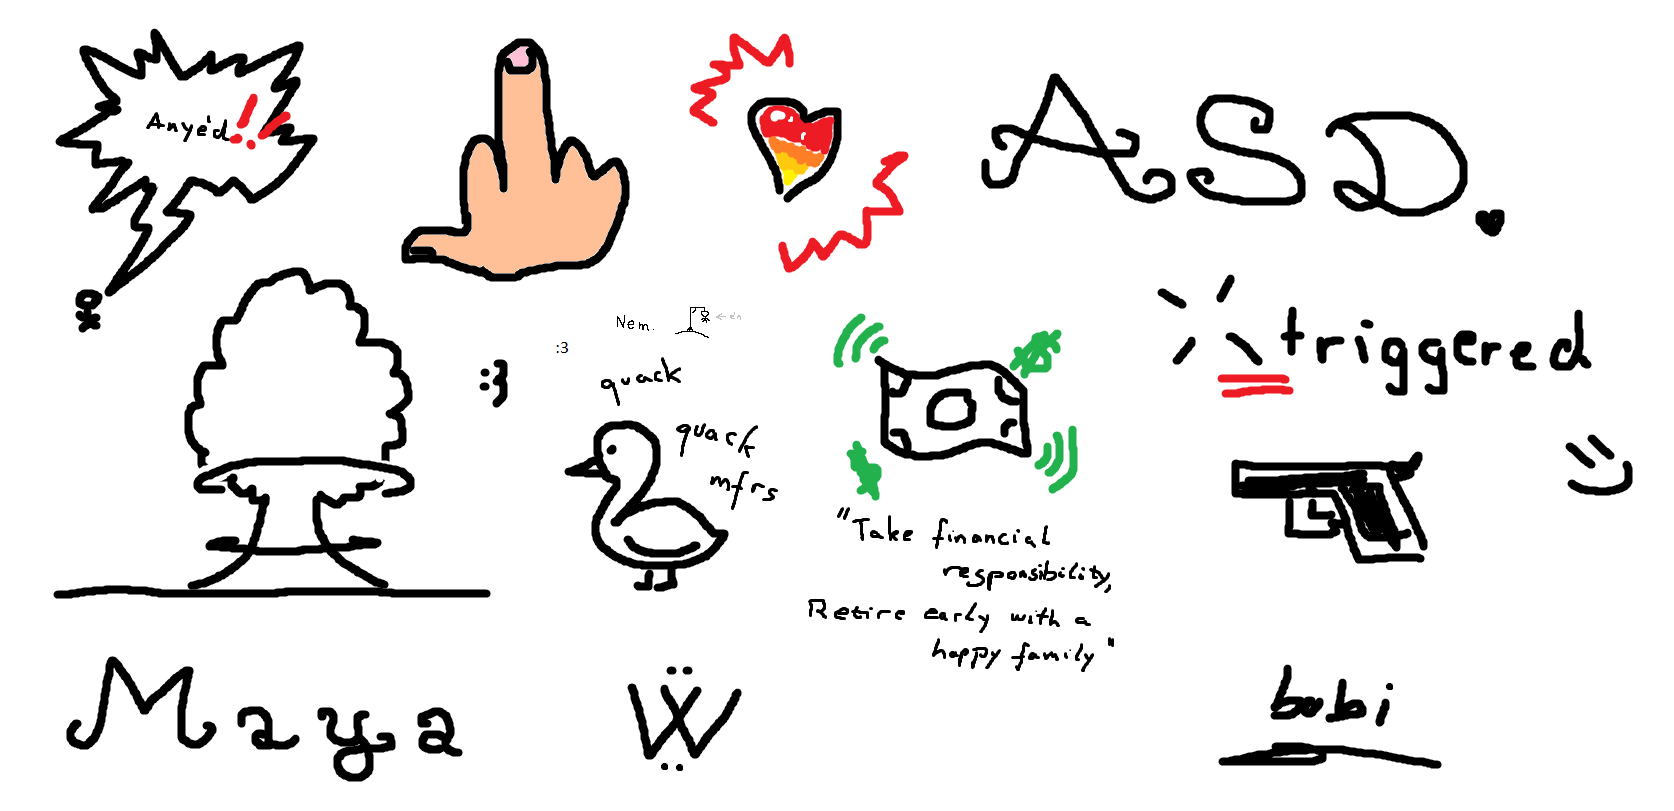 Anyéd!!
ASD.
Nem.
← én
:3
:3
quack
quack
mfrs
triggered
"Take financial
responsibility,
Retire early with a
happy family"
Maya
Ẅ
bubi